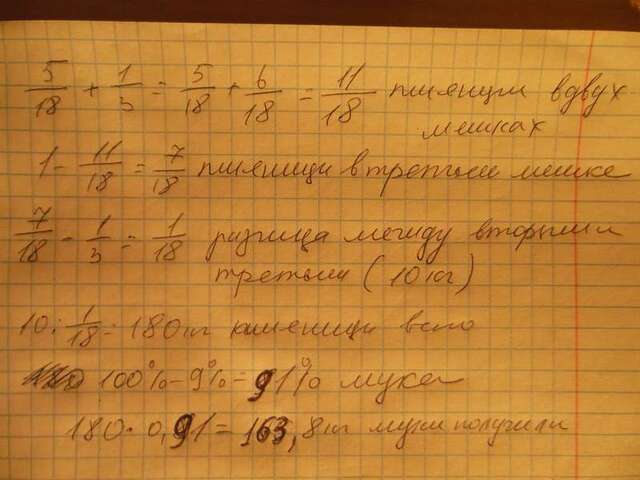 5/18 + 1/3 = 5/18 + 6/18 = 11/18 пшеницы в двух
мешках
1 - 11/18 = 7/18 пшеницы в третьем мешке
7/18 - 1/3 = 1/18 разница между вторым и
третьим (10 кг)
10 : 1/18 = 180 кг пшеницы всего
100% - 9% = 91% мука
180 · 0,91 = 163,8 кг муки получили